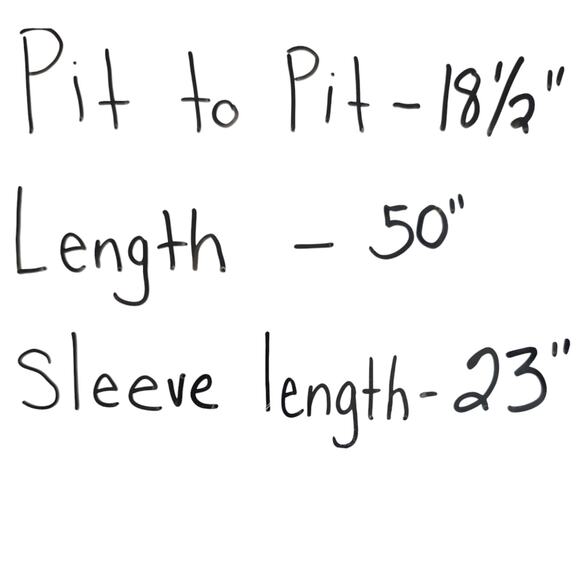 Pit to Pit - 18 1/2"
Length - 50"
Sleeve length - 23"